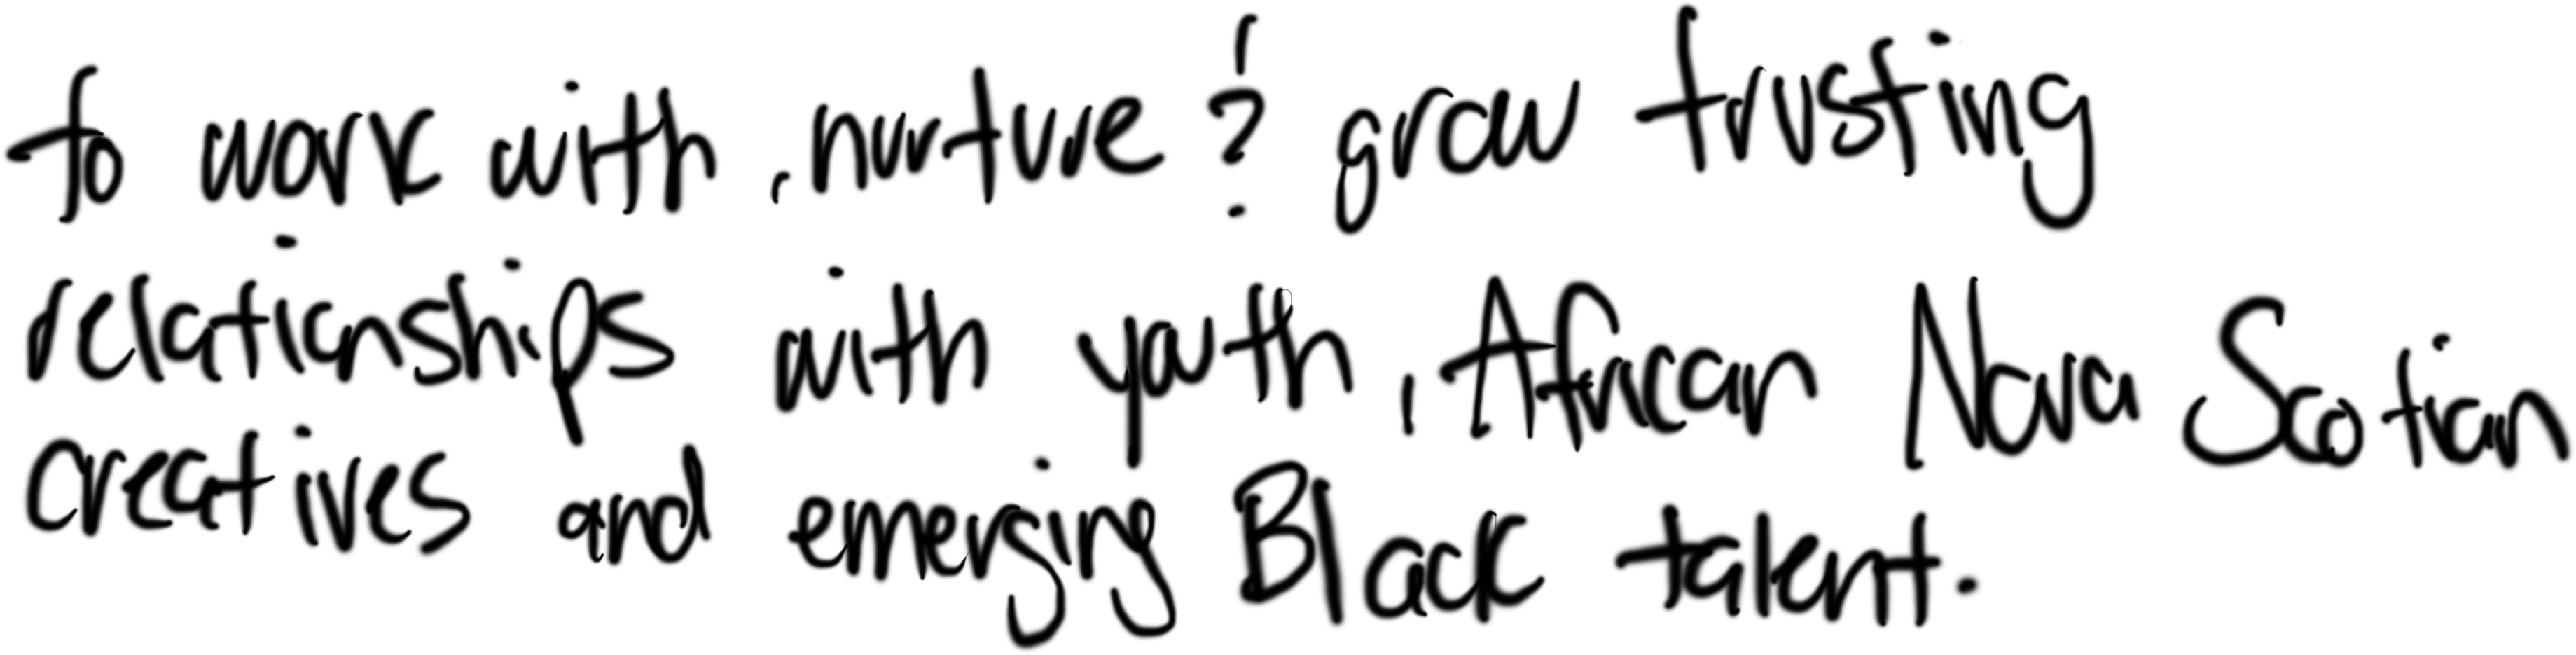 to work with, nurture & grow trusting
relationships with youth, African Nova Scotian
creatives and emerging Black talent.